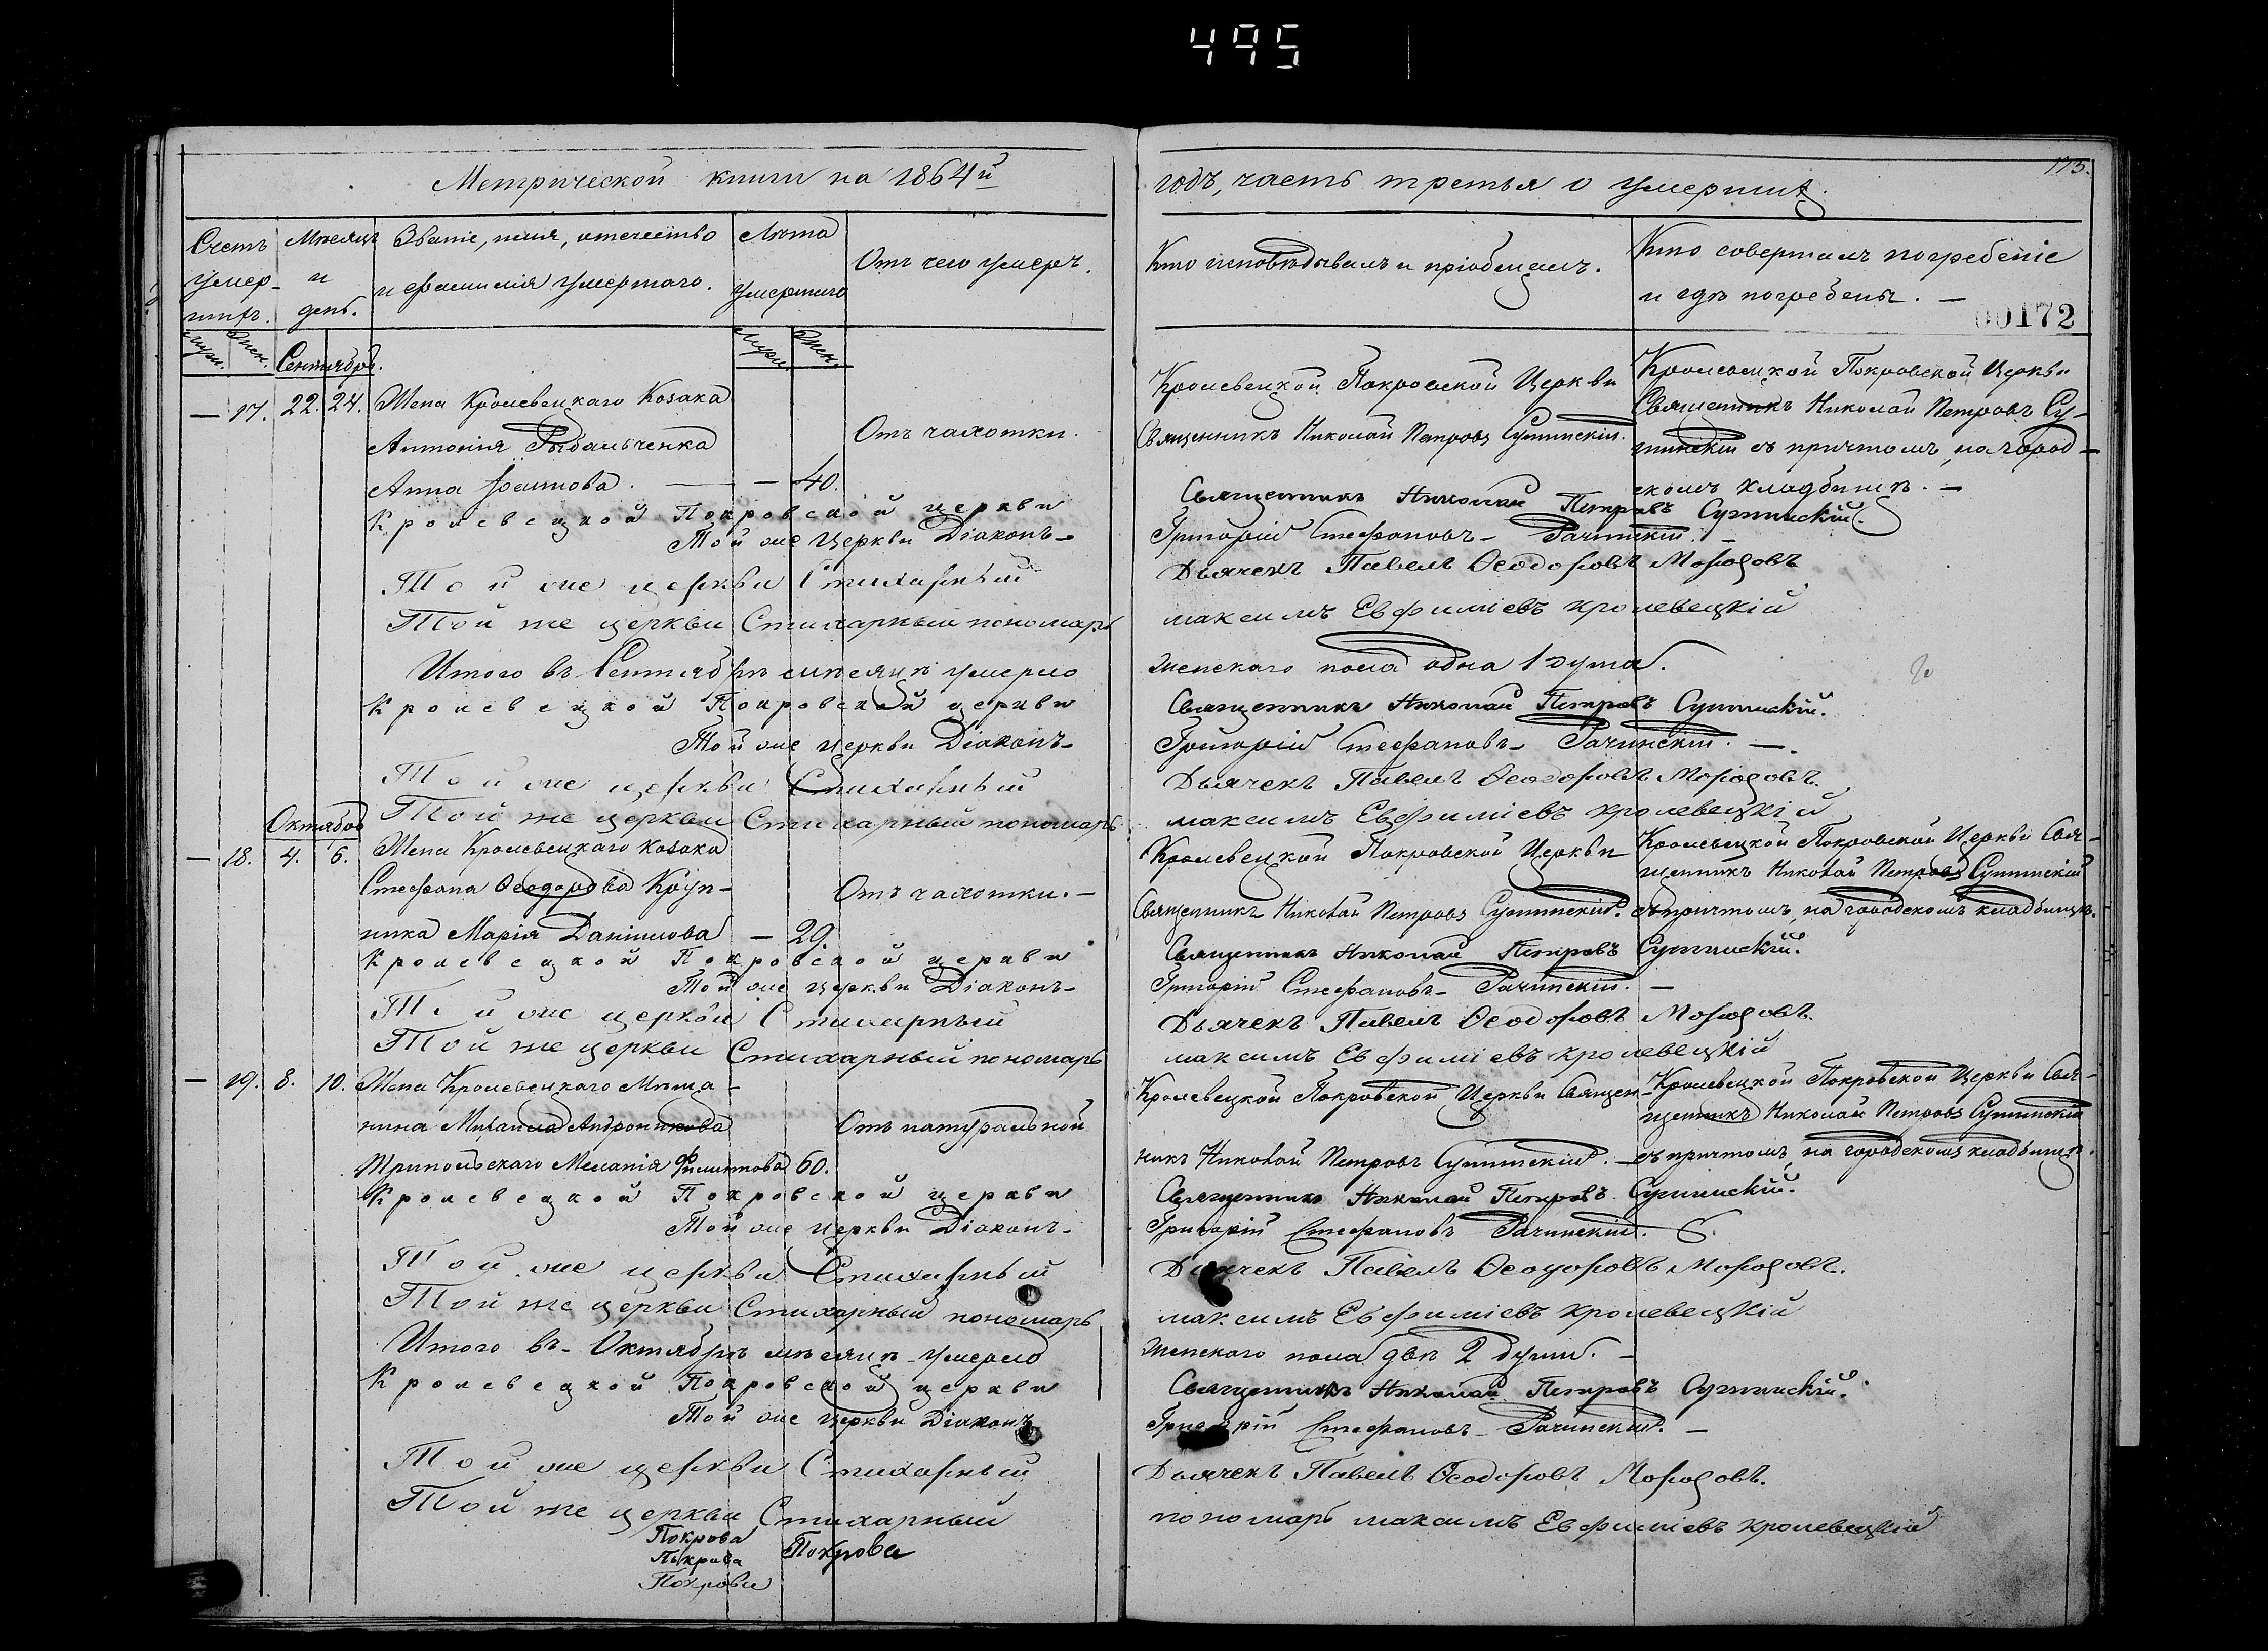 495
175.
Метрической книги на 1864й
годъ, часть третья о умершихъ.
Счетъ умершихъ.
Мѣсяцъ и день.
Званіе, имя, отчество и фамилія умершаго.
Лѣта умершаго
Отъ чего умеръ.
Кто исповѣдывалъ и пріобщалъ.
Кто совершалъ погребеніе и гдѣ погребены. —
00172
Муж. Жен.
Сентябрь.
Муж. Жен.
— 17. 22. 24. Жена Кролевецкаго Козака
Антонія Рыбальченка
Анна — — 40.
Отъ чахотки.
Кролевецкой Покровской Церкви
Священникъ Николай Петровъ
Кролевецкой Покровской Церкви
Священникъ Николай Петровъ
съ причтомъ, на город-
скомъ кладбищѣ. —
Кролевецкой Покровской церкви
Священникъ Николай Петровъ
Той же Церкви Діаконъ —
Григорій Стефановъ — Рачинскій. —
Той же церкви Стихарный
Дьячекъ Павелъ Ѳеодоровъ Морозовъ
Той же церкви Стихарный пономарь
максимъ Евфиміевъ кролевецкій
Итого въ Сентябрѣ мѣсяцѣ умерло
женскаго пола одна 1 душа.
Кролевецкой Покровской церкви
Священникъ Николай Петровъ
Той же Церкви Діаконъ —
Григорій Стефановъ — Рачинскій. —.
Той же церкви Стихарный
Дьячекъ Павелъ Ѳеодоровъ Морозовъ.
Той же церкви Стихарный пономарь
максимъ Евфиміевъ кролевецкій
Октябрь
— 18. 4. 6. Жена Кролевецкаго Козака
Стефана Ѳеодорова Круп-
ника Марія Даніилова — 29.
Отъ чахотки. —
Кролевецкой Покровской Церкви
Священникъ Николай Петровъ
Кролевецкой Покровской Церкви Свя-
щенникъ Николай Петровъ
съ причтомъ, на городскомъ кладбищѣ.
Кролевецкой Покровской церкви
Священникъ Николай Петровъ
Той же Церкви Діаконъ —
Григорій Стефановъ — Рачинскій. —
Той же церкви Стихарный
Дьячекъ Павелъ Ѳеодоровъ Морозовъ.
Той же церкви Стихарный пономарь
максимъ Евфиміевъ кролевецкій
— 19. 8. 10. Жена Кролевецкаго Мѣща-
нина Михаила Андроникова
Трипольскаго Меланія Филиппова 60.
Отъ натуральной
Кролевецкой Покровской Церкви Священ-
никъ Николай Петровъ
Кролевецкой Покровской Церкви Свя-
щенникъ Николай Петровъ
съ причтомъ, на городскомъ кладбищѣ.
Кролевецкой Покровской церкви
Священникъ Николай Петровъ
Той же Церкви Діаконъ —
Григорій Стефановъ Рачинскій.
Той же церкви Стихарный
Дьячекъ Павелъ Ѳеодоровъ Морозовъ.
Той же церкви Стихарный пономарь
максимъ Евфиміевъ кролевецкій
Итого въ — Октябрѣ мѣсяцѣ — умерло
женскаго пола двѣ 2 души. —
Кролевецкой Покровской церкви
Священникъ Николай Петровъ
Той же Церкви Діаконъ
Григорій Стефановъ — Рачинскій. —
Той же церкви Стихарный
Дьячекъ Павелъ Ѳеодоровъ Морозовъ.
Той же церкви Стихарный
пономарь максимъ Евфиміевъ кролевецкій
Покрова
Покрова Покрова
Покрова